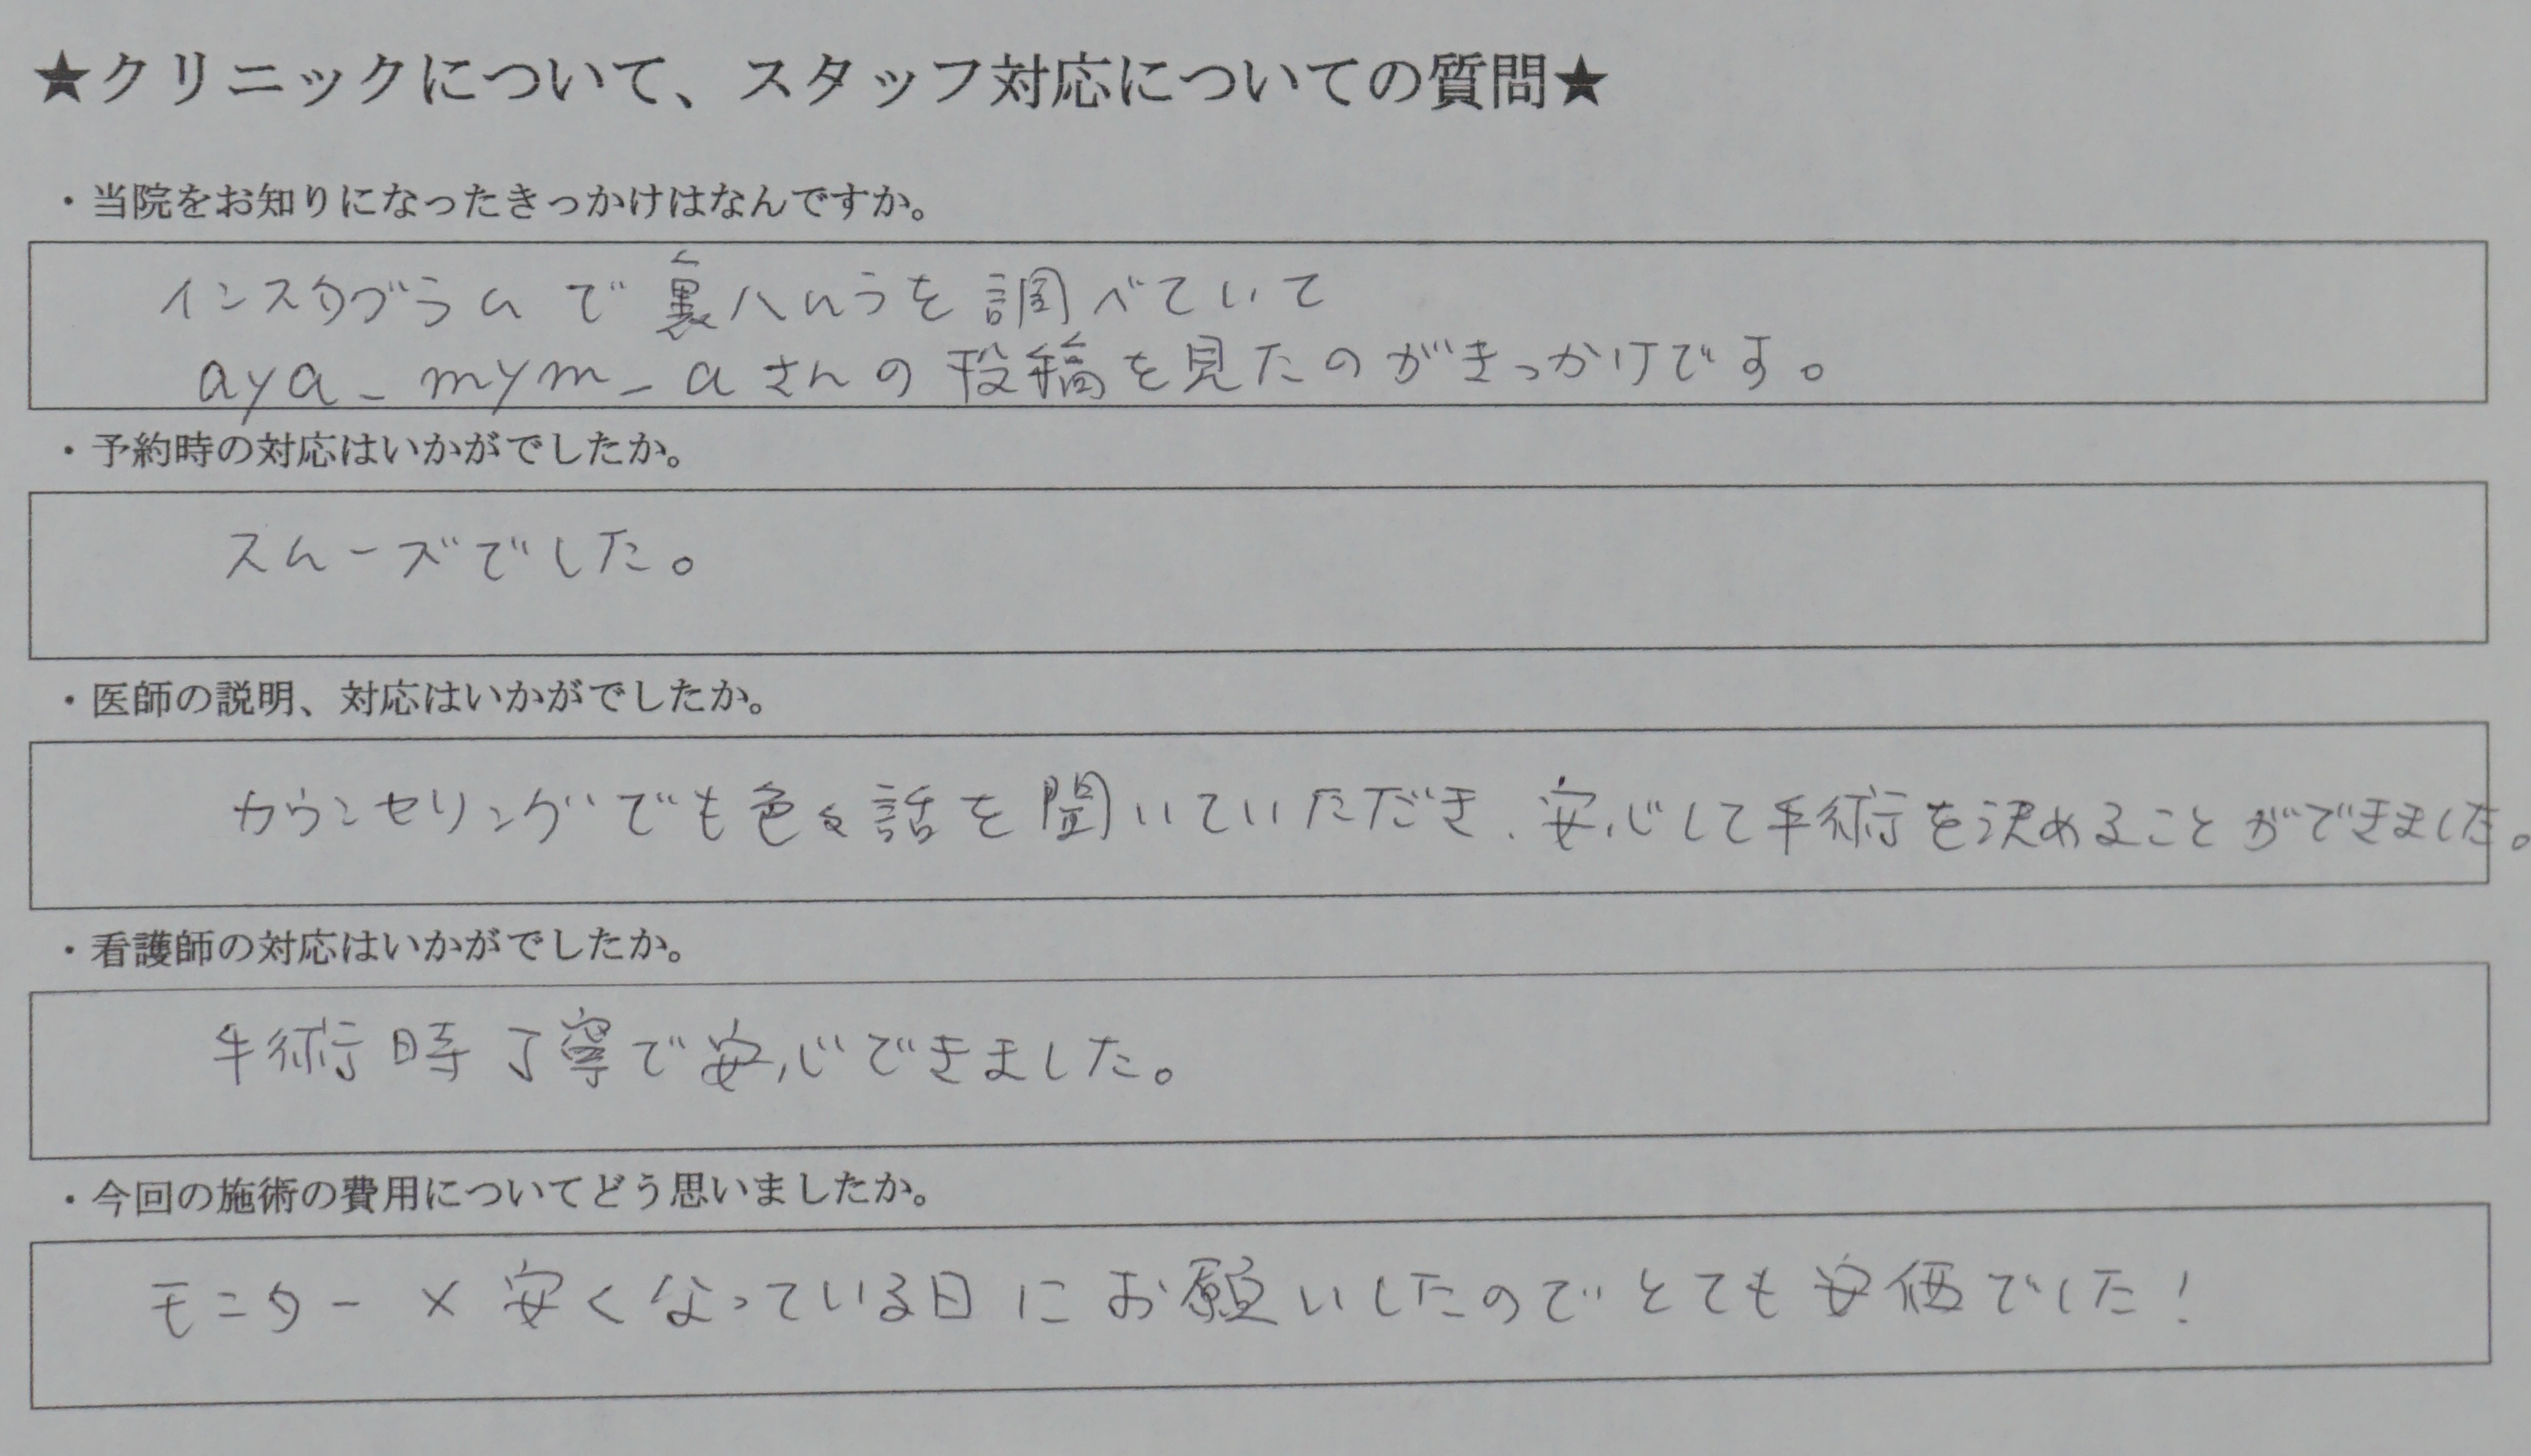 ★クリニックについて、スタッフ対応についての質問★
・当院をお知りになったきっかけはなんですか。
インスタグラムで裏ハムラを調べていて
aya_mym_aさんの投稿を見たのがきっかけです。
・予約時の対応はいかがでしたか。
スムーズでした。
・医師の説明、対応はいかがでしたか。
カウンセリングでも色々話を聞いていただき、安心して手術を決めることができました。
・看護師の対応はいかがでしたか。
手術時丁寧で安心できました。
・今回の施術の費用についてどう思いましたか。
モニター×安くなっている日にお願いしたのでとても安価でした!